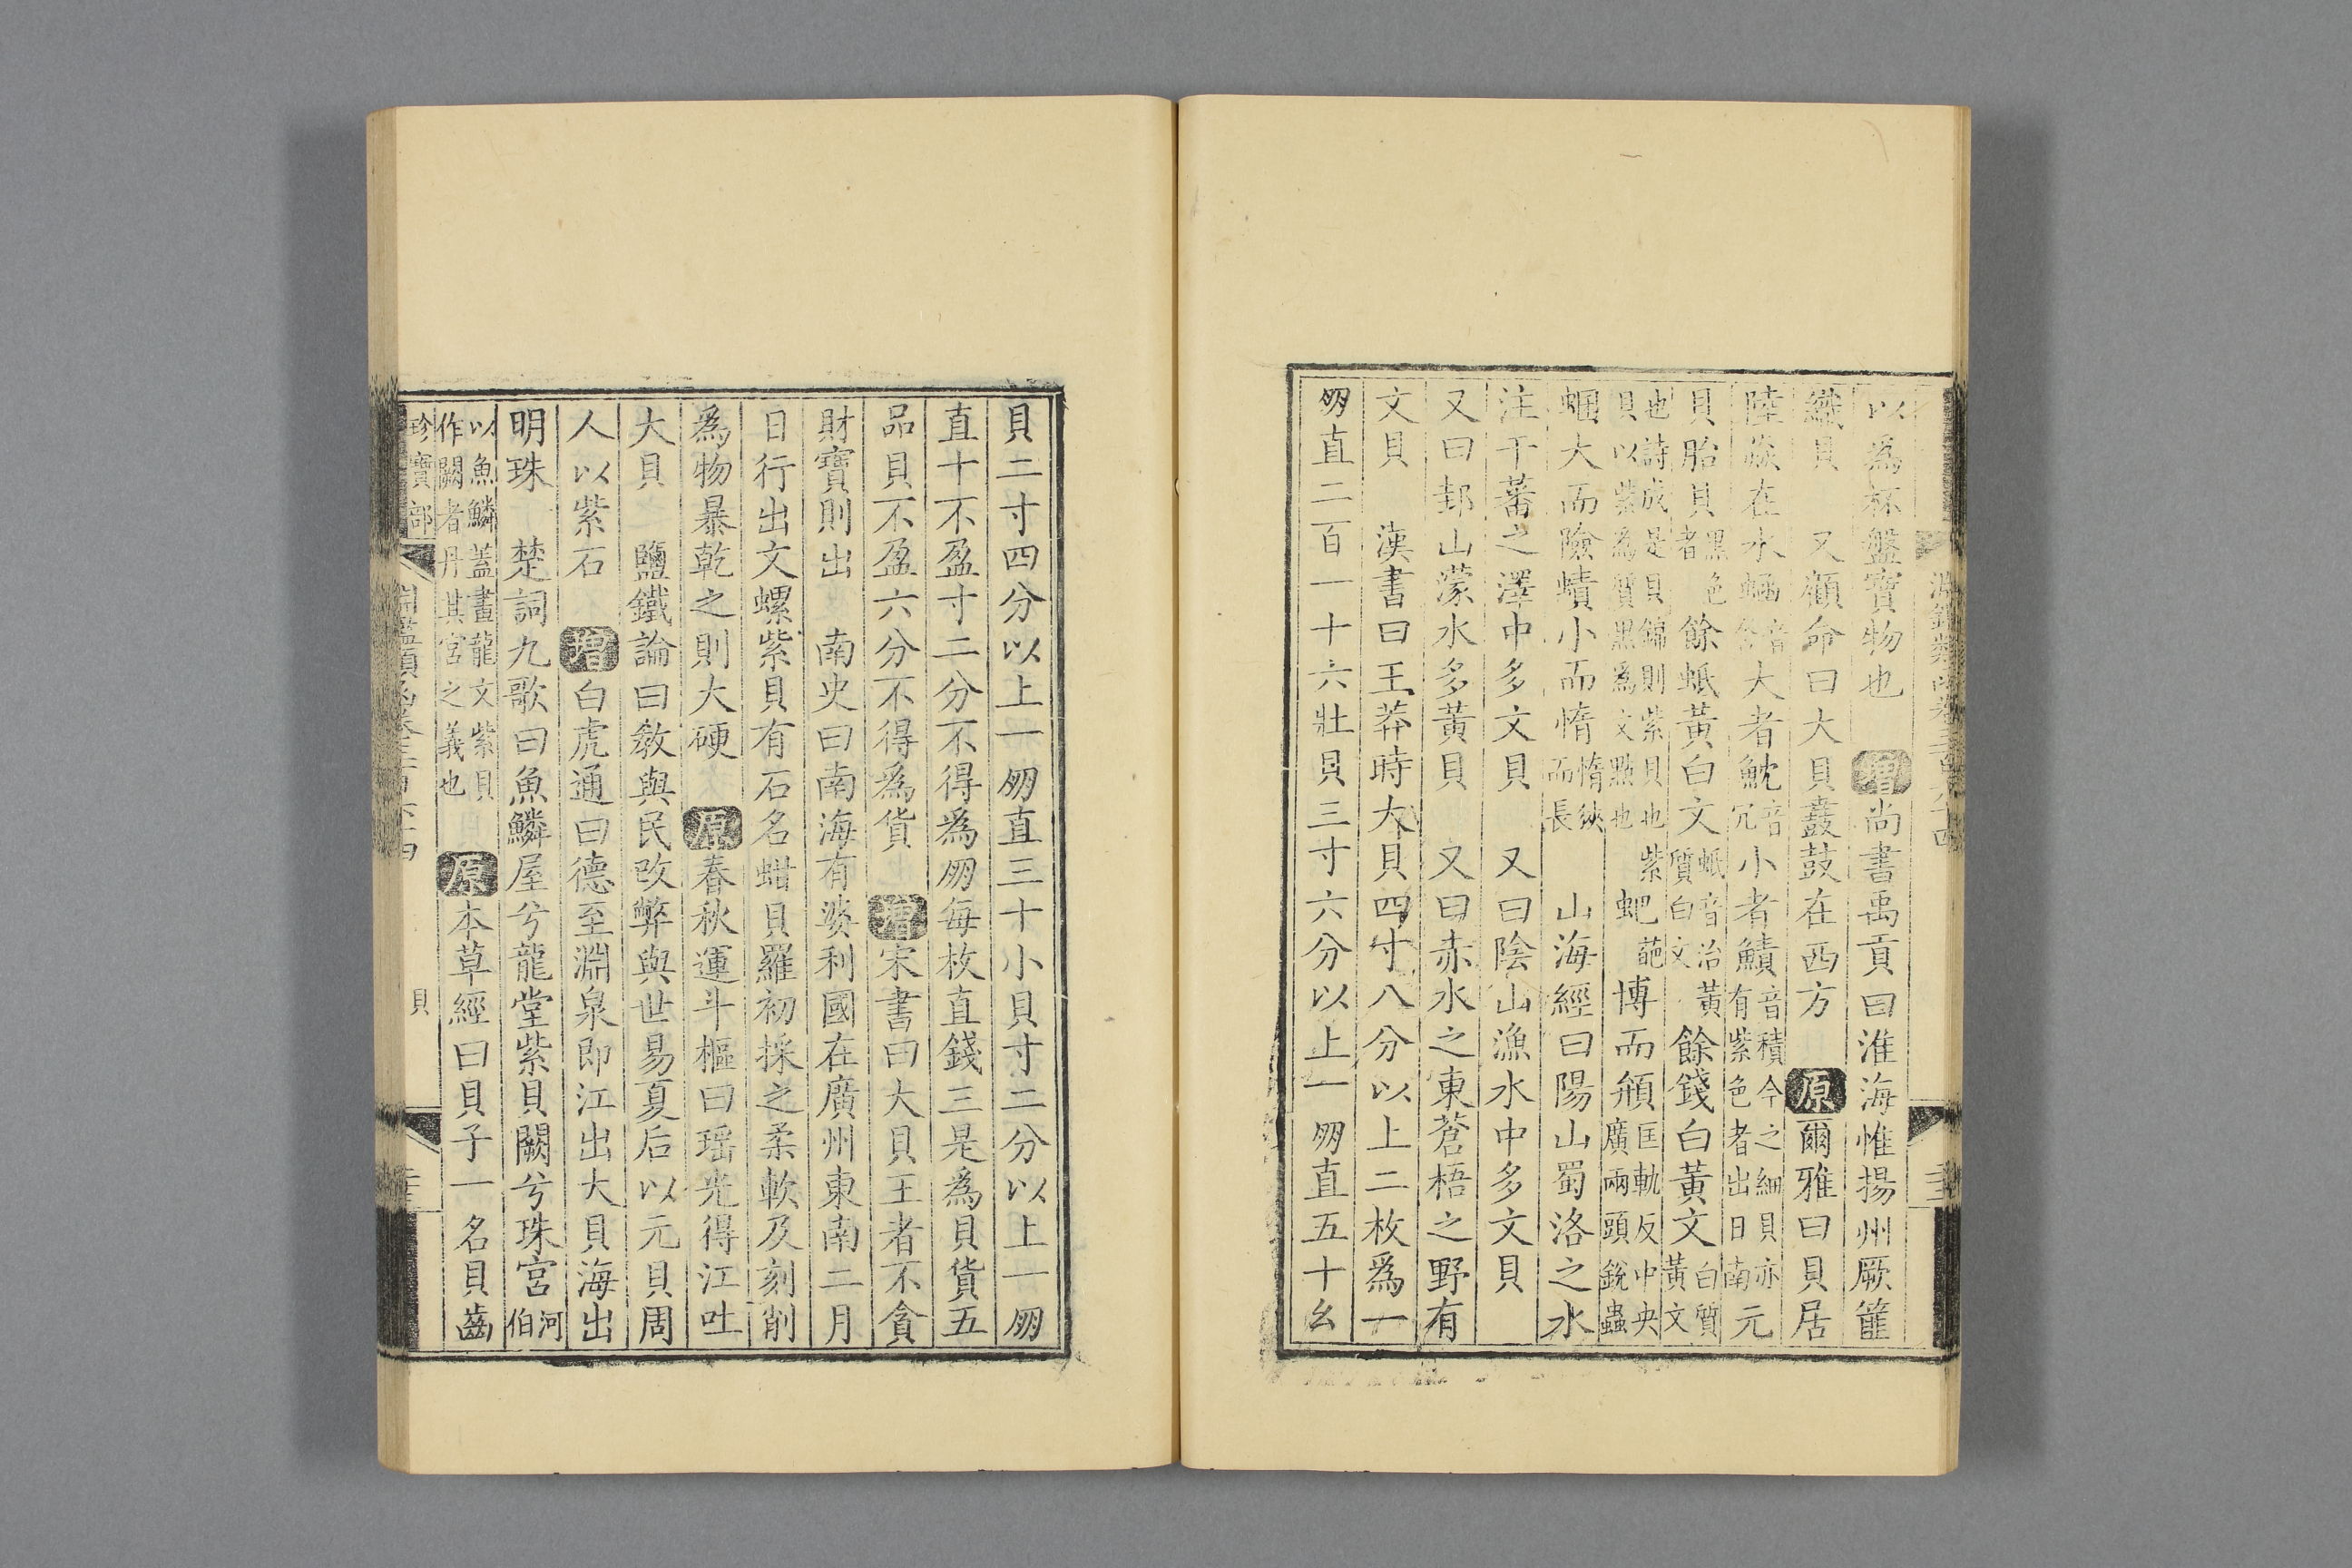 以爲杯盤寶物也 增尚書禹貢曰淮海惟揚州厥篚
織貝 又顧命曰大貝鼖鼓在西方 原爾雅曰貝居
陸贆在水蜬音含大者魧音冗小者鰿音積今之細貝亦有紫色者出日南元
貝胎貝黑色者 餘蚳黃白文蚳音治黃質白文餘錢白黃文白質黃文
也詩成是貝錦則紫貝也紫貝以紫爲質黑爲文點也 蚆葩博而頯匡軌反中央廣兩頭銳蟲
蜠大而險蟦小而惰惰狹而長 山海經曰陽山蜀洛之水
注于蕃之澤中多文貝 又曰陰山漁水中多文貝
又曰邽山濛水多黃貝 又曰赤水之東蒼梧之野有
文貝 漢書曰王莽時大貝四寸八分以上二枚爲一
朋直二百一十六壯貝三寸六分以上一朋直五十幺
貝二寸四分以上一朋直三十小貝寸二分以上一朋
直十不盈寸二分不得爲朋每枚直錢三是爲貝貨五
品貝不盈六分不得爲貨 增宋書曰大貝王者不貪
財寶則出 南史曰南海有婆利國在廣州東南二月
日行出文螺紫貝有石名蚶貝羅初採之柔軟及刻削
爲物暴乾之則大硬 原春秋運斗樞曰瑶光得江吐
大貝 鹽鐵論曰敎與民改弊與世易夏后以元貝周
人以紫石 增白虎通曰德至淵泉即江出大貝海出
明珠 楚詞九歌曰魚鱗屋兮龍堂紫貝闕兮珠宮河伯
以魚鱗蓋畫龍文紫貝作闕者丹其宮之義也 原本草經曰貝子一名貝齒
珍寶部
淵鑑類函卷三百六十四
貝